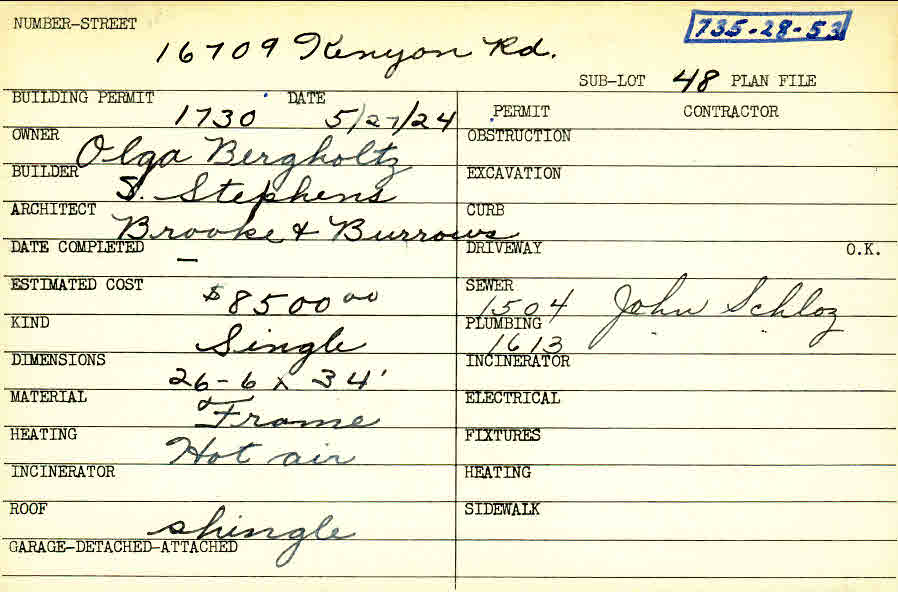 NUMBER-STREET
735-28-53
16709 Kenyon Rd.
SUB-LOT 48 PLAN FILE
BUILDING PERMIT 1730 DATE 5/27/24
OWNER Olga Bergholtz
BUILDER S. Stephens
ARCHITECT Brooke & Burrows
DATE COMPLETED –
ESTIMATED COST $8500 00
KIND Single
DIMENSIONS 26-6 x 34'
MATERIAL Frame
HEATING Hot air
INCINERATOR
ROOF shingle
GARAGE-DETACHED-ATTACHED
PERMIT CONTRACTOR
OBSTRUCTION
EXCAVATION
CURB
DRIVEWAY O.K.
SEWER 1504 John Schloz
PLUMBING 1613 " "
INCINERATOR
ELECTRICAL
FIXTURES
HEATING
SIDEWALK